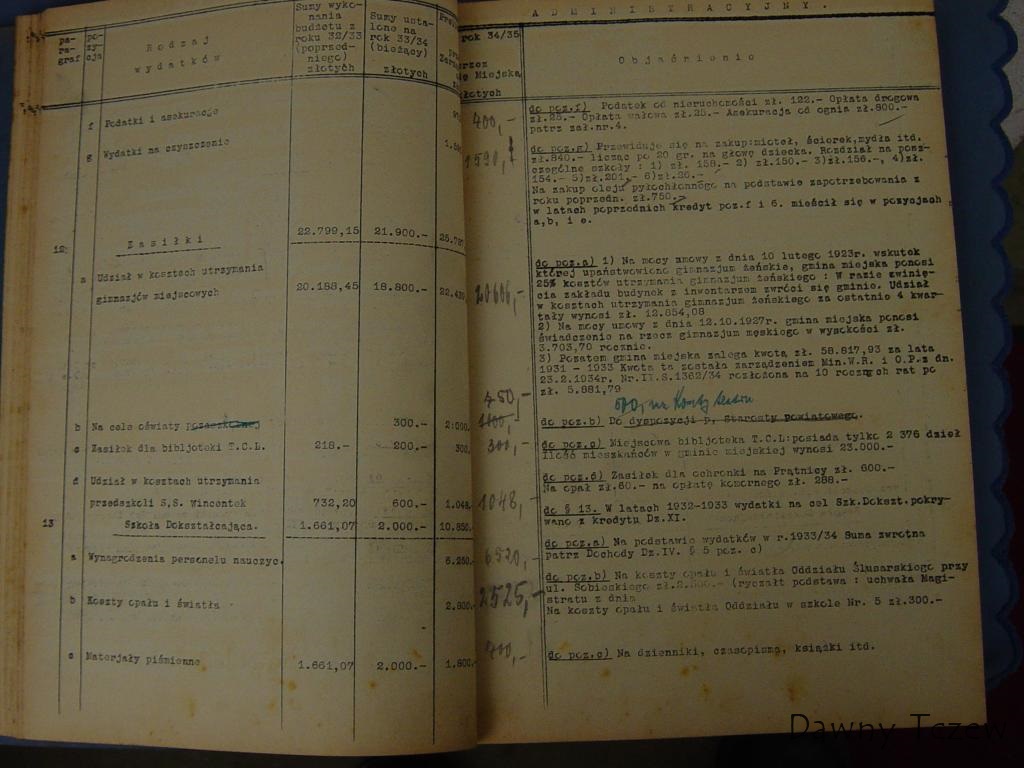 ADMINISTRACYJNY.
pa-
ra-
graf
po-
zy-
cja
Rodzaj
wydatków
Sumy wyko-
nania
budżetu z
roku 32/33
(poprzed-
niego)
złotych
Sumy usta-
lone na
rok 33/34
(bieżący)
złotych
rok 34/35
przez
Miejską
złotych
Objaśnienie
f Podatki i asekuracje
400,-
do poz.f) Podatek od nieruchomości zł. 122.- Opłata drogowa
zł.25.- Opłata wałowa zł.25.- Asekuracja od ognia zł.800.-
patrz zał.nr.4.
g Wydatki na czyszczenie
1590,-
do poz.g) Przewiduje się na zakup:mioteł, ścierek,mydła itd.
zł.840.- licząc po 20 gr. na głowę dziecka. Rozdział na posz-
czególne szkoły : 1) zł. 158.- 2) zł.150.- 3)zł.156.-, 4)zł.
154.- 5)zł.201,- 6)zł.20.-
Na zakup oleju pyłochłonnego na podstawie zapotrzebowania z
roku poprzedn. zł.750.-
w latach poprzednich kredyt poz.f i 6. mieścił się w pozycjach
a,b, i e.
12 Zasiłki 22.799,15 21.900.-
a Udział w kosztach utrzymania
gimnazjów miejscowych 20.188,45 18.800.- 22.430 20606,-
do poz.a) 1) Na mocy umowy z dnia 10 lutego 1923r. wskutek
której upaństwowiono gimnazjum żeńskie, gmina miejska ponosi
25% kosztów utrzymania gimnazjum żeńskiego : W razie zwinię-
cia zakładu budynek z inwentarzem zwróci się gminie. Udział
w kosztach utrzymania gimnazjum żeńskiego za ostatnie 4 kwar-
tały wynosi zł. 12.854,08
2) Na mocy umowy z dnia 12.10.1927r. gmina miejska ponosi
świadczenie na rzecz gimnazjum męskiego w wysokości zł.
3.703,70 rocznie.
3) Pozatem gmina miejska zalega kwotą zł. 58.817,93 za lata
1931 - 1933 Kwota ta została zarządzeniem Min.W.R. i O.P.z dn.
23.2.1934r. Nr.II.S.1362/34 rozłożona na 10 rocznych rat po
zł. 5.881,79
450,-
b Na cele oświaty pozaszkolnej 300.- 2.000
do poz.b) Do dyspozycji p. Starosty powiatowego.
c Zasiłek dla bibljoteki T.C.L. 218.- 200.- 300 300,-
do poz.c) Miejscowa bibljoteka T.C.L:posiada tylko 2 376 dzieł
Ilość mieszkańców w gminie miejskiej wynosi 23.000.-
d Udział w kosztach utrzymania
przedszkoli S.S. Wincentek 732,20 600.- 1.048 1048,-
do poz.d) Zasiłek dla ochronki na Prątnicy zł. 600.-
Na opał zł.60.- na opłatę komornego zł. 288.-
13 Szkoła Dokształcająca. 1.661,07 2.000.- 10.850
do § 13. W latach 1932-1933 wydatki na cel Szk.Dokszt.pokry-
wano z kredytu Dz.XI.
a Wynagrodzenia personelu nauczyc. 6.250 6520,-
do poz.a) Na podstawie wydatków w r.1933/34 Suma zwrotna
patrz Dochody Dz.IV. § 5 poz. c)
b Koszty opału i światła 2.800 2525,-
do poz.b) Na koszty opału i światła Oddziału Ślusarskiego przy
ul. Sobieskiego zł.2.500.- (ryczałt podstawa : uchwała Magi-
stratu z dnia
Na koszty opału i światła Oddziału w szkole Nr. 5 zł.300.-
c Materjały piśmienne 1.661,07 2.000.- 1.800 400,-
do poz.c) Na dzienniki, czasopisma, książki itd.
Dawny Tczew